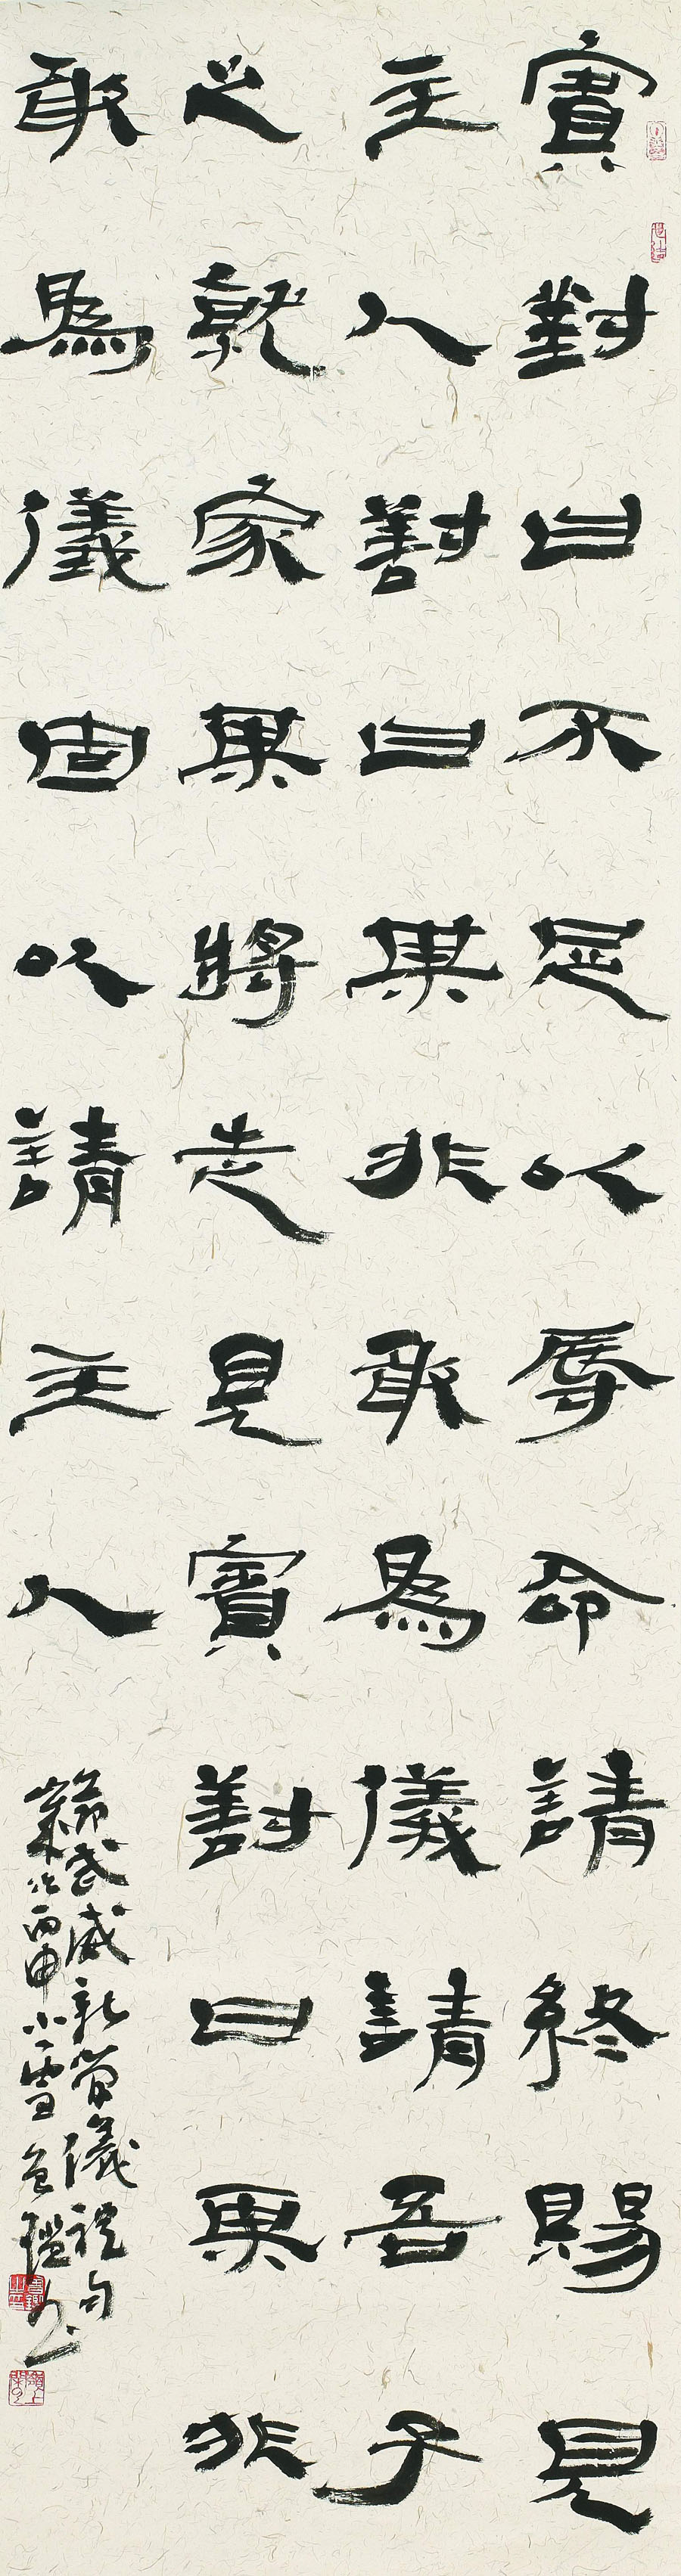 賓對曰不足以辱命請終賜見
主人對曰某非敢爲儀請吾子
之就家某將走見賓對曰某非
敢爲儀固以請主人
節武威新簡儀禮句
丙申小雪